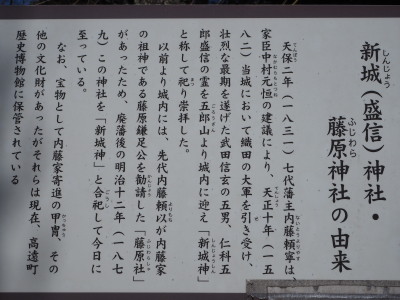 新城（盛信）神社・
藤原神社の由来
天保二年（一八三一）七代藩主内藤頼寧は、
家臣中村元恒の建議により、天正十年（一五
八二）当城において織田の大軍を引き受け、
壮烈な最期を遂げた武田信玄の五男、仁科五
郎盛信の霊を五郎山より城内に迎え「新城神」
と称して祀り崇拝した。
以前より城内には、先代内藤頼以が内藤家
の祖神である藤原鎌足公を勧請した「藤原社」
があったため、廃藩後の明治十二年（一八七
九）この神社を「新城神」と合祀して今日に
至っている。
なお、宝物として内藤家寄進の甲冑、その
他の文化財があったがそれらは現在、高遠町
歴史博物館に保管されている